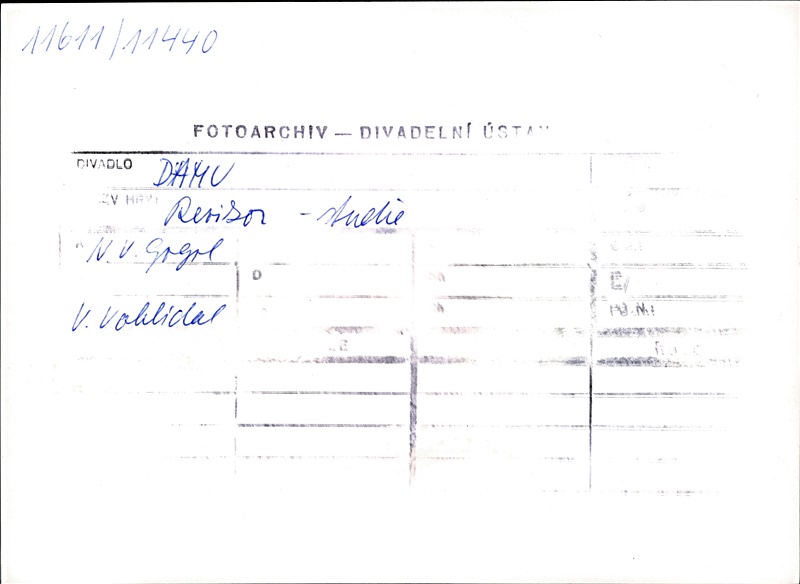 11611/11440
FOTOARCHIV — DIVADELNÍ ÚSTAV
DIVADLO DAMU
Revizor - studie
N.V. Gogol
D
V. Vohlídal